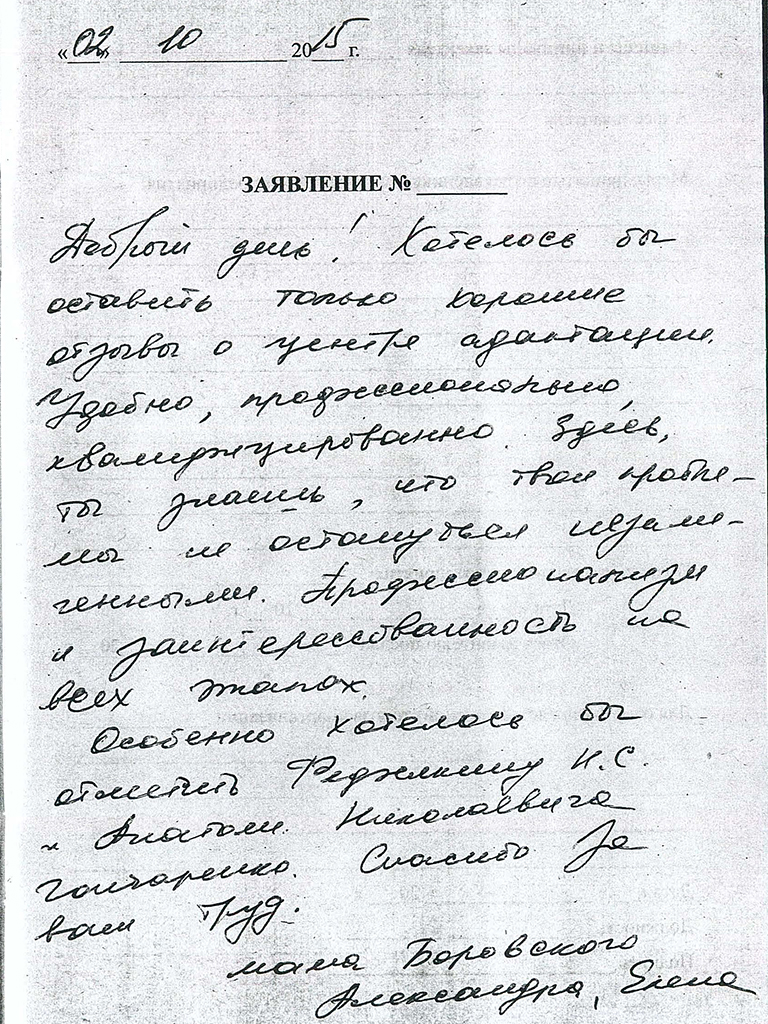 «02» 10 2015 г.
ЗАЯВЛЕНИЕ №
Добрый день! Хотелось бы
оставить только хорошие
отзывы о центре адаптации.
Удобно, профессионально,
квалифицированно. Здесь,
ты знаешь, что твои пробле-
мы не останутся незаме-
ченными. Профессионализм
и заинтересованность на
всех этапах.
Особенно хотелось бы
отметить Н.С.
и Анатолия Николаевича
Гончаренко. Спасибо за
ваш труд.
мама Боровского
Александра, Елена